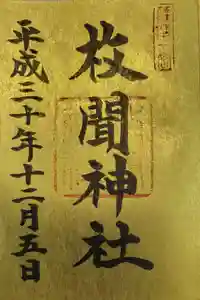 枚聞神社
平成三十年十二月五日